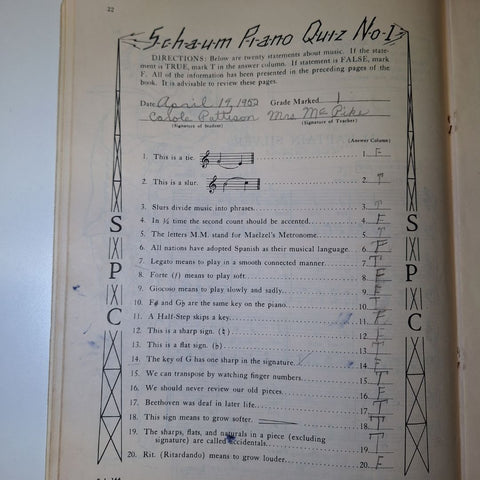 22
Schaum Piano Quiz No.1
DIRECTIONS: Below are twenty statements about music. If the state-
ment is TRUE, mark T in the answer column. If statement is FALSE, mark
F. All of the information has been presented in the preceding pages of the
book. It is advisable to review these pages.
Date April 19, 1952 Grade Marked 1
Carola Pattison Mrs McPike
(Signature of Student) (Signature of Teacher)
(Answer Column)
1. This is a tie. 1. F
2. This is a slur. 2. T
3. Slurs divide music into phrases. 3. T
4. In ¾ time the second count should be accented. 4. F
5. The letters M.M. stand for Maelzel's Metronome. 5. T
6. All nations have adopted Spanish as their musical language. 6. F
7. Legato means to play in a smooth connected manner. 7. T
8. Forte (f) means to play soft. 8. F
9. Giocoso means to play slowly and sadly. 9. F
10. F# and G♭ are the same key on the piano. 10. T
11. A Half-Step skips a key. 11. F
12. This is a sharp sign. (♮) 12. F
13. This is a flat sign. (♭) 13. T
14. The key of G has one sharp in the signature. 14. F
15. We can transpose by watching finger numbers. 15. F
16. We should never review our old pieces. 16. F
17. Beethoven was deaf in later life. 17. T
18. This sign means to grow softer. 18. T
19. The sharps, flats, and naturals in a piece (excluding
signature) are called accidentals. 19. T
20. Rit. (Ritardando) means to grow louder. 20. F
S
P
C
S
P
C